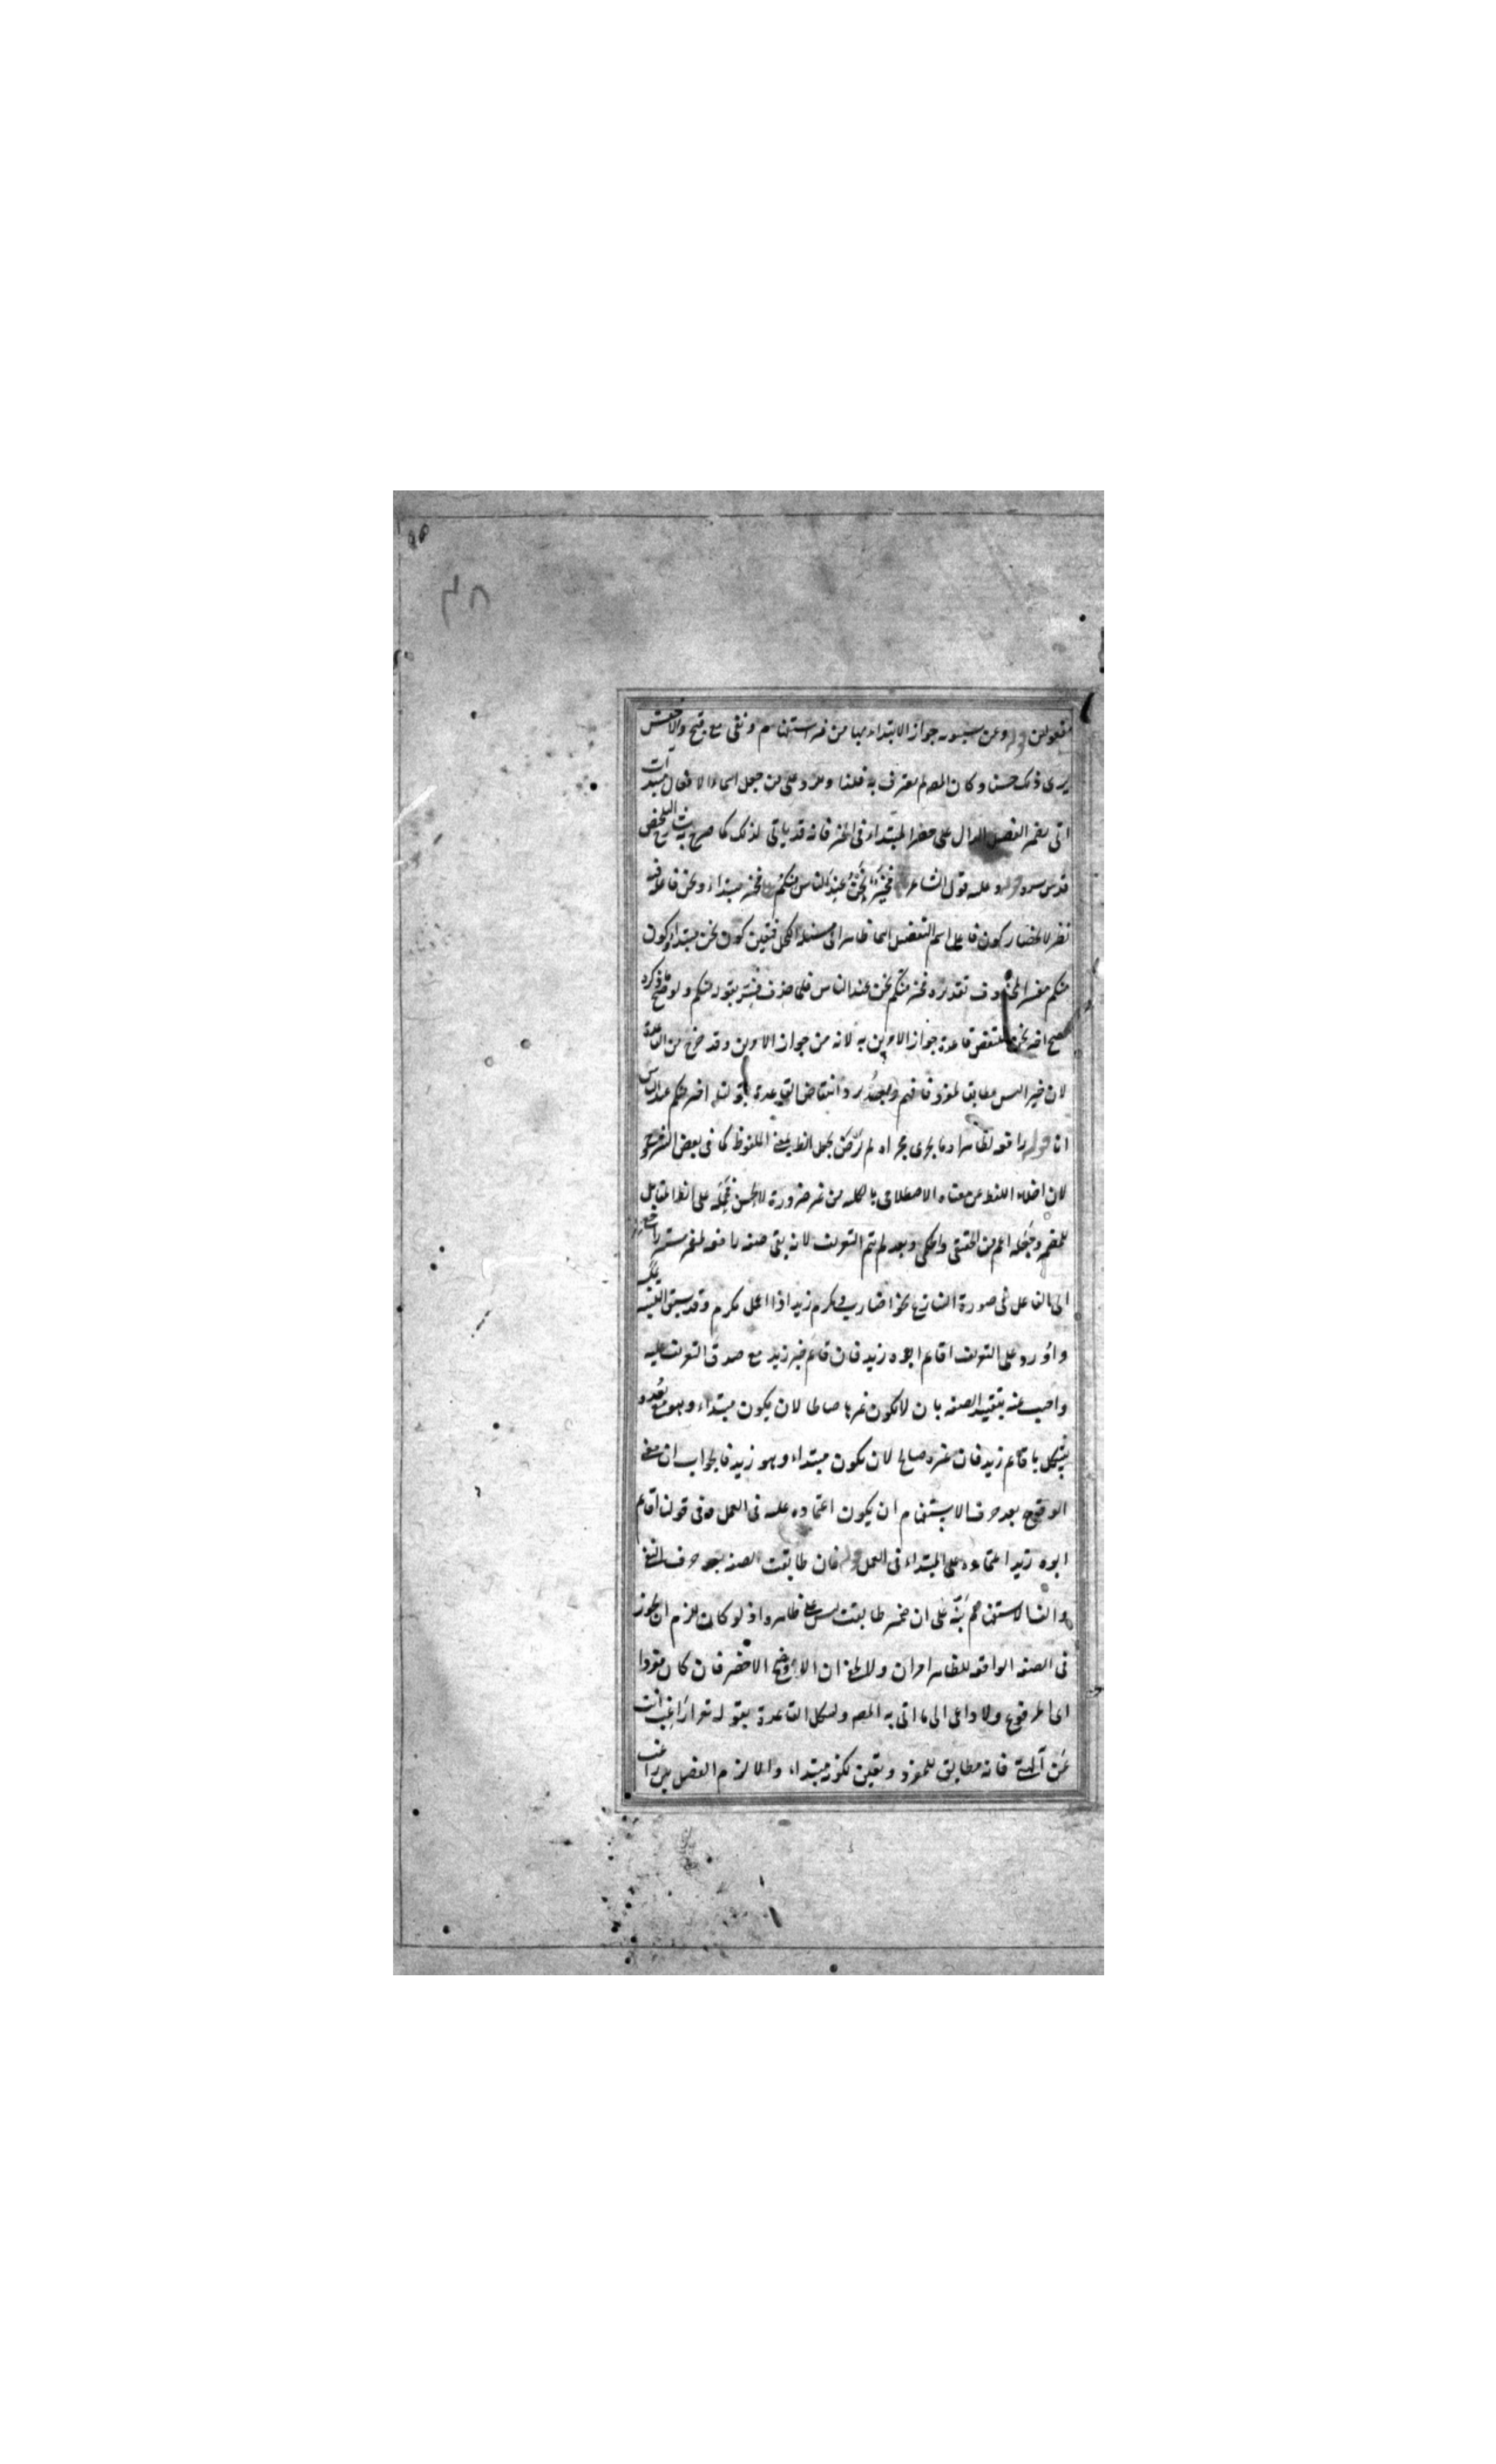 مفعولين قوله وعن سيبويه جواز الابتداء بها من غير استفهام ونفى مع قبح والاخفش
يرى ذلك حسنا وكان المصه لم يعترف به فلذا ولم يرد على من جعل اسماء الافعال مبتدأت
اتى بضمير الفصل الدال على حصر المبتداء فى الخبر فانه قد ياتى لذلك كما صرح به
قدس سره قوله وعليه قول الشاعر فخير نحن عند الناس منكم فخير مبتداء ونحن فاعله فيه
نظر لانحصار كون فاعل اسم التفضيل اسما ظاهرا فى مسئلة الكحل فتعين كون نحن مبتداء وكون
منكم مفسر المحذوف تقديره فخير منكم نحن عند الناس فلما حذف فسر بقوله منكم ولو
صح فخير نحن لانتقض قاعدة جواز الامرين به لانه من جواز الامرين وقد خرج من القاعدة
لان خير ليس مطابق لمفرد فافهم وبعد يرد انتقاض القاعدة بقولنا اخير منكم عند الناس
انا قوله رافعه لظاهر او ما يجرى مجراه لم يرض بحمل الظاهر على الملفوظ كما فى بعض الشروح
لان اخلاء اللفظ عن معناه الاصطلاحى بالكلية من غير ضرورة لا يحسن فحمله على الظاهر المقابل
للمضمر وجعله اعم من الحقيقى والحكمى وبعد لم يتم التعريف لانه بقى صفة رافعة لمضمر مستتر راجع
الى الفاعل فى صورة التنازع نحو اضارب ومكرم زيد اذا اعمل مكرم وقد سبق
واورد على التعريف اقائم ابوه زيد فان قائم خبر زيد مع صدق التعريف عليه
واجيب عنه بتقييد الصفة بان لا يكون غيرها صالحا لان يكون مبتداء وهو مع بعده
يشكل باقائم زيد فان غيره صالح لان يكون مبتداء وهو زيد فالجواب ان معنى
الوقوع بعد حرف الاستفهام ان يكون اعتماده عليه فى العمل وفى قولنا اقائم
ابوه زيد اعتماده على المبتداء فى العمل قوله فان طابقت الصفة بعد حرف النفى
والف الاستفهام نبّه على ان ضمير طابقت ليس على ظاهره اذ لو كانت للزم ان يجوز
فى الصفة الرافعة للظاهر امران ولا يخفى ان الاوضح الاخصر فان كان مفردا
اى المرفوع ولا داعى الى ما اتى به المصه ويشكل القاعدة بقوله تع اراغب انت
عن آلهتى فانه مطابق للمفرد وتعين لكونه مبتداء والا لزم الفصل بين راغب